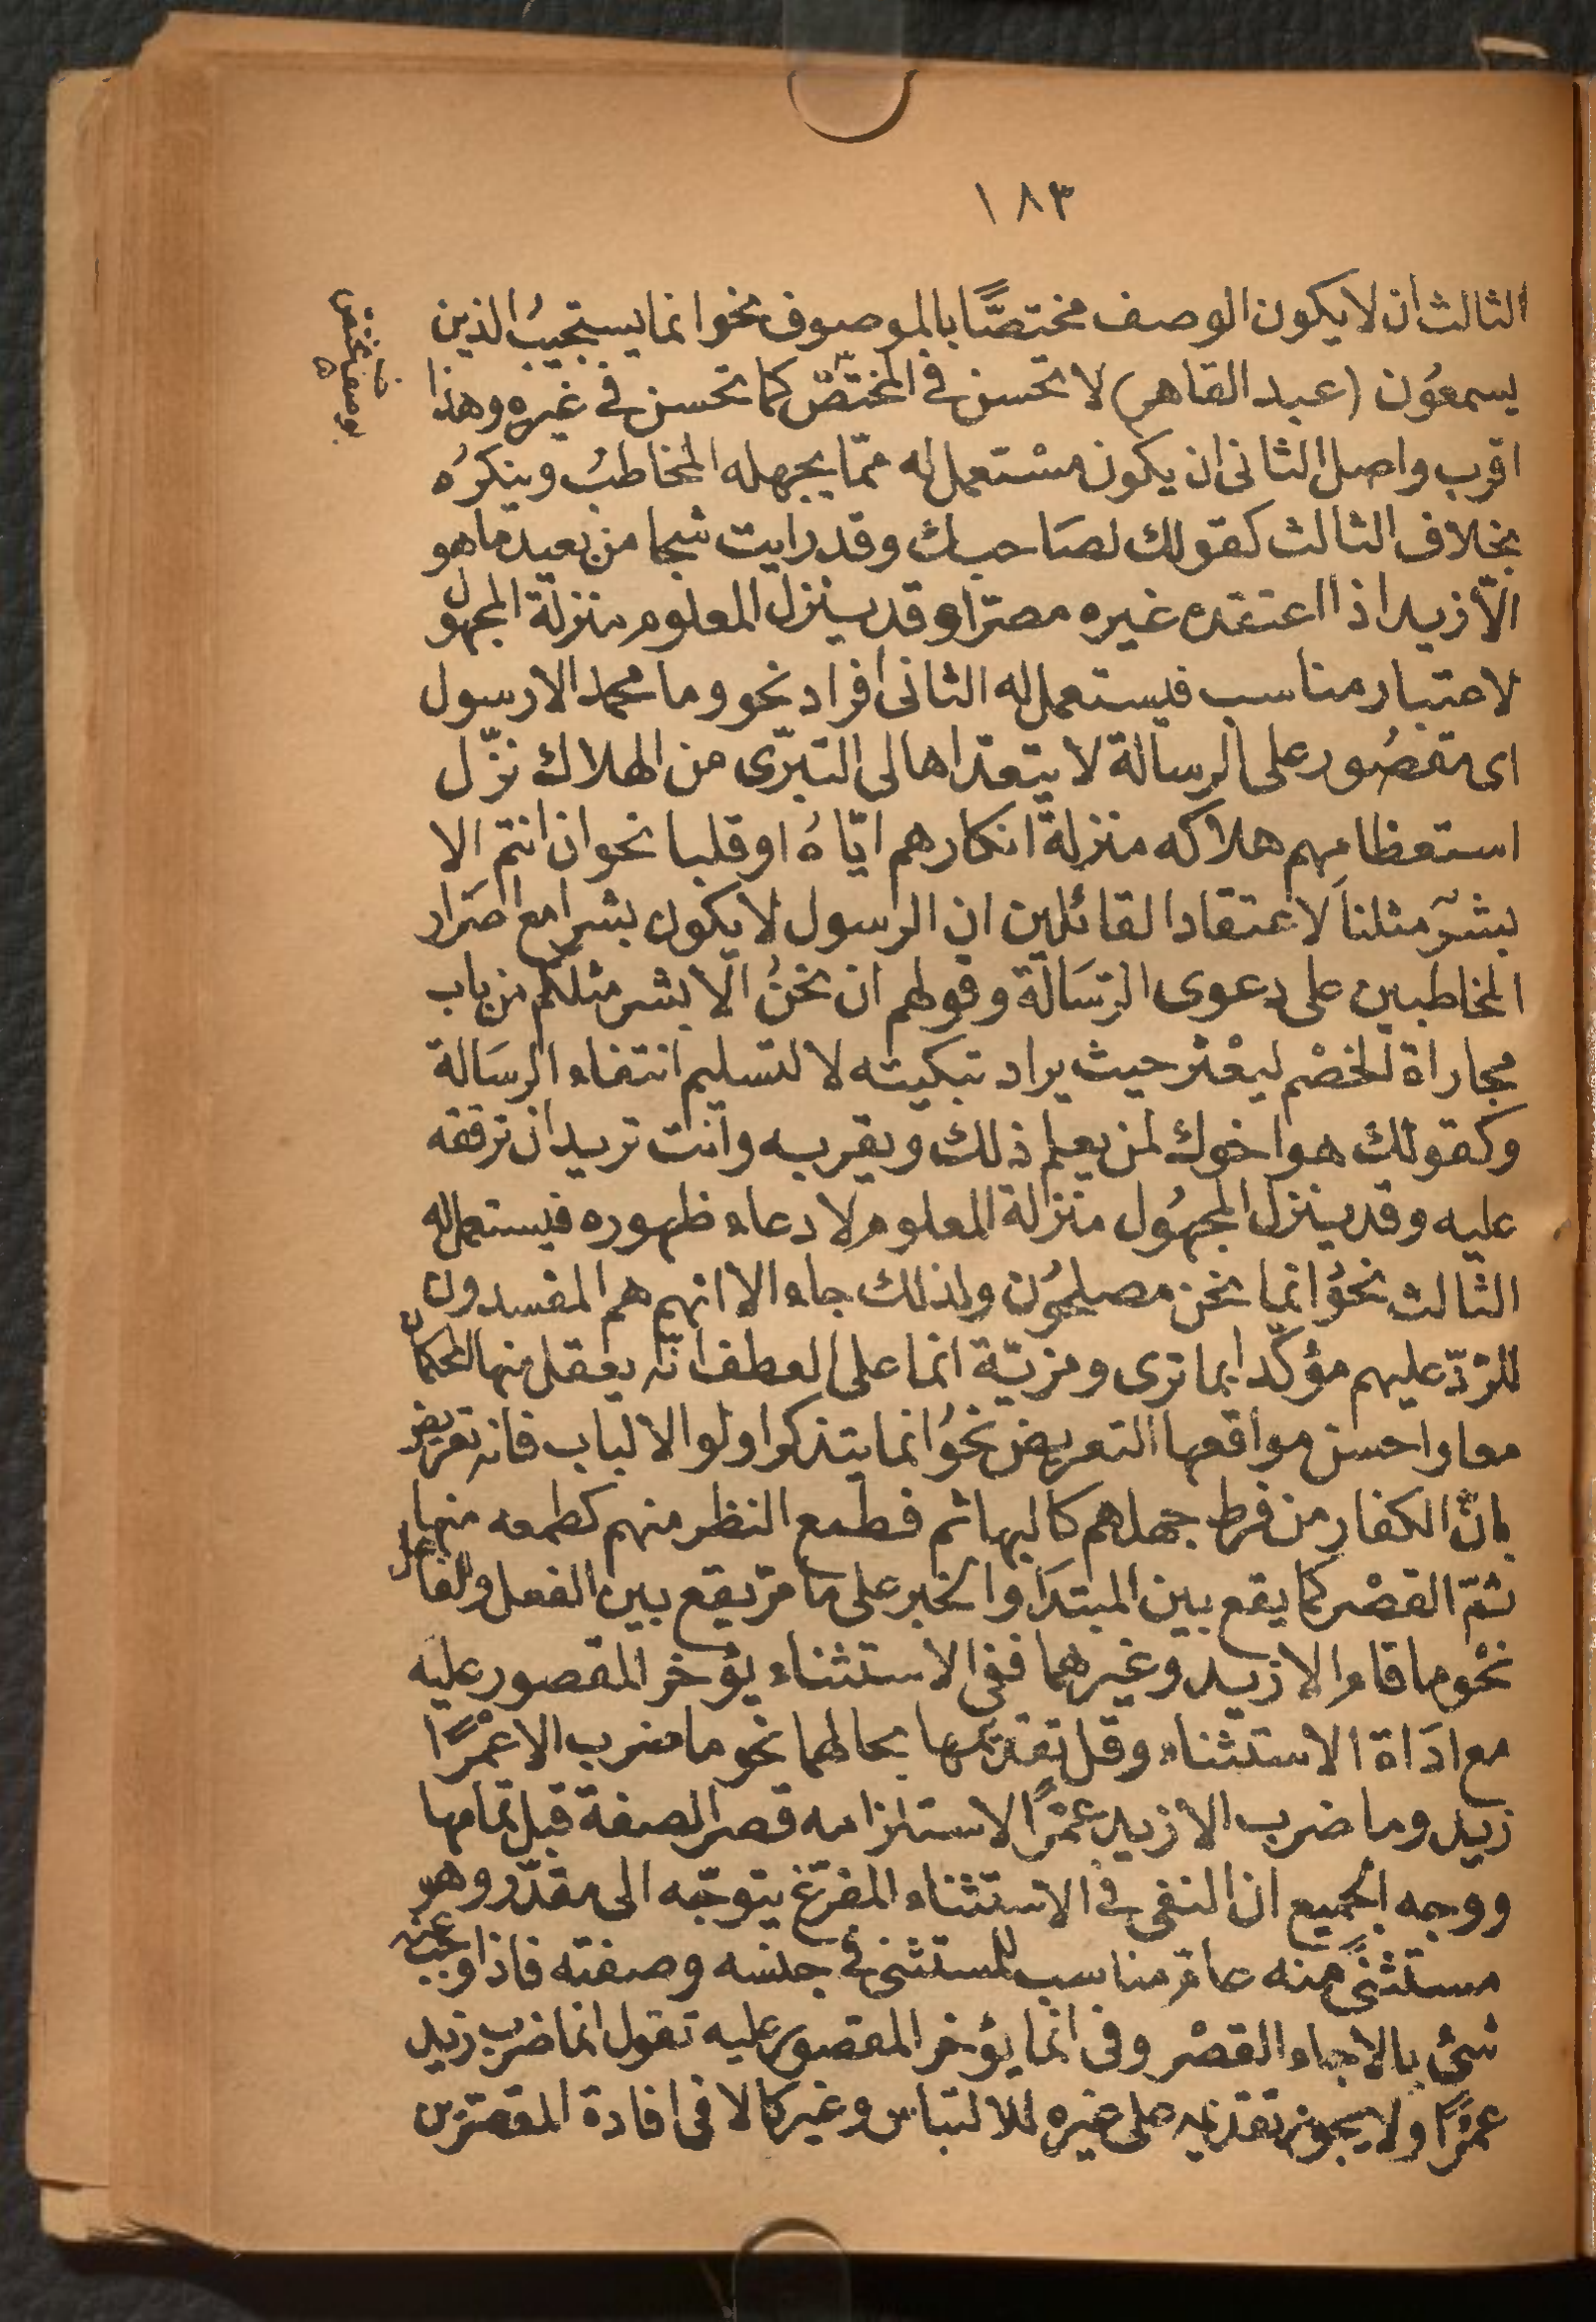 ١٨٣
الثالث ان لا يكون الوصف مختصًّا بالموصوف نحو انما يستجيبُ الذين
يسمعُون (عبد القاهر) لا تحسن فى المختصّ كما تحسن فى غيره وهذا
اقرب واصل الثانى ان يكون مسْتعمل له ممّا يجهله المخاطبُ وينكرُه
بخلاف الثالث كقولك لصَاحبك وقد رايت شبحا من بعيد ما هو
الّا زيد اذا اعتقده غيره مصرّا وقد ينزل المعلوم منزلة المجهول
لاعتبار مناسب فيستعمل له الثانى افراد نحو وما محمد الا رسول
اى مقصُور على الرسالة لا يتعدّاها الى التبرّى من الهلاك نزّل
استعظامهم هلاكه منزلة انكارهم ايّاهُ او قلبا نحو ان انتم الا
بشرٌ مثلنا لاعتقاد القائلين ان الرسول لا يكون بشرا مع اصرَار
المخاطبين على دعوى الرّسَالة وقولهم ان نحنُ الّا بشر مثلكم من باب
مجاراة الخصْم ليعْثر حيث يراد تبكيته لا لتسليم انتفاء الرسَالة
وكقولك هو اخوك لمن يعلم ذلك ويقر به وانت تريد ان ترققه
عليه وقد ينزل المجهُول منزلة المعلوم لادعاء ظهوره فيستعمل له
الثالث نحوُ انما نحن مصلحُون ولذلك جاء الا انهم هم المفسدون
للرّدّ عليهم مؤكّدا بما ترى ومزيّة انما على العطف انّه يعقل منها الحكمان
معا واحسن مواقعها التعريض نحوُ انما يتذكر اولوا الالباب فانه تعريض
بانّ الكفار من فرط جهلهم كالبهائم فطمع النظر منهم كطمعه منها
ثمّ القصْر كما يقع بين المبتدَا والخبر على ما مرّ يقع بين الفعل والفاعل
نحْو ما قام الا زيد وغيرهما ففى الاستثناء يؤخر المقصور عليه
مع ادَاة الاستثناء وقل تقديمها بحالهما نحو ما ضرب الا عمْرًا
زيد وما ضرب الا زيد عمْرًا لاستلزامه قصر الصفة قبل تمامها
ووجه الجميع ان النفى فى الاستثناء المفرّغ يتوجّه الى مقدّر وهو
مستثنًى منه عامّ مناسب للمستثنى فى جنسه وصفته فاذا اوجب منه
شئ بالا جاء القصْر وفى انما يؤخر المقصور عليه تقول انما ضرب زيد
عمْرًا ولا يجوز تقديمه على غيره للالتباس وغير كالا فى افادة القصرين